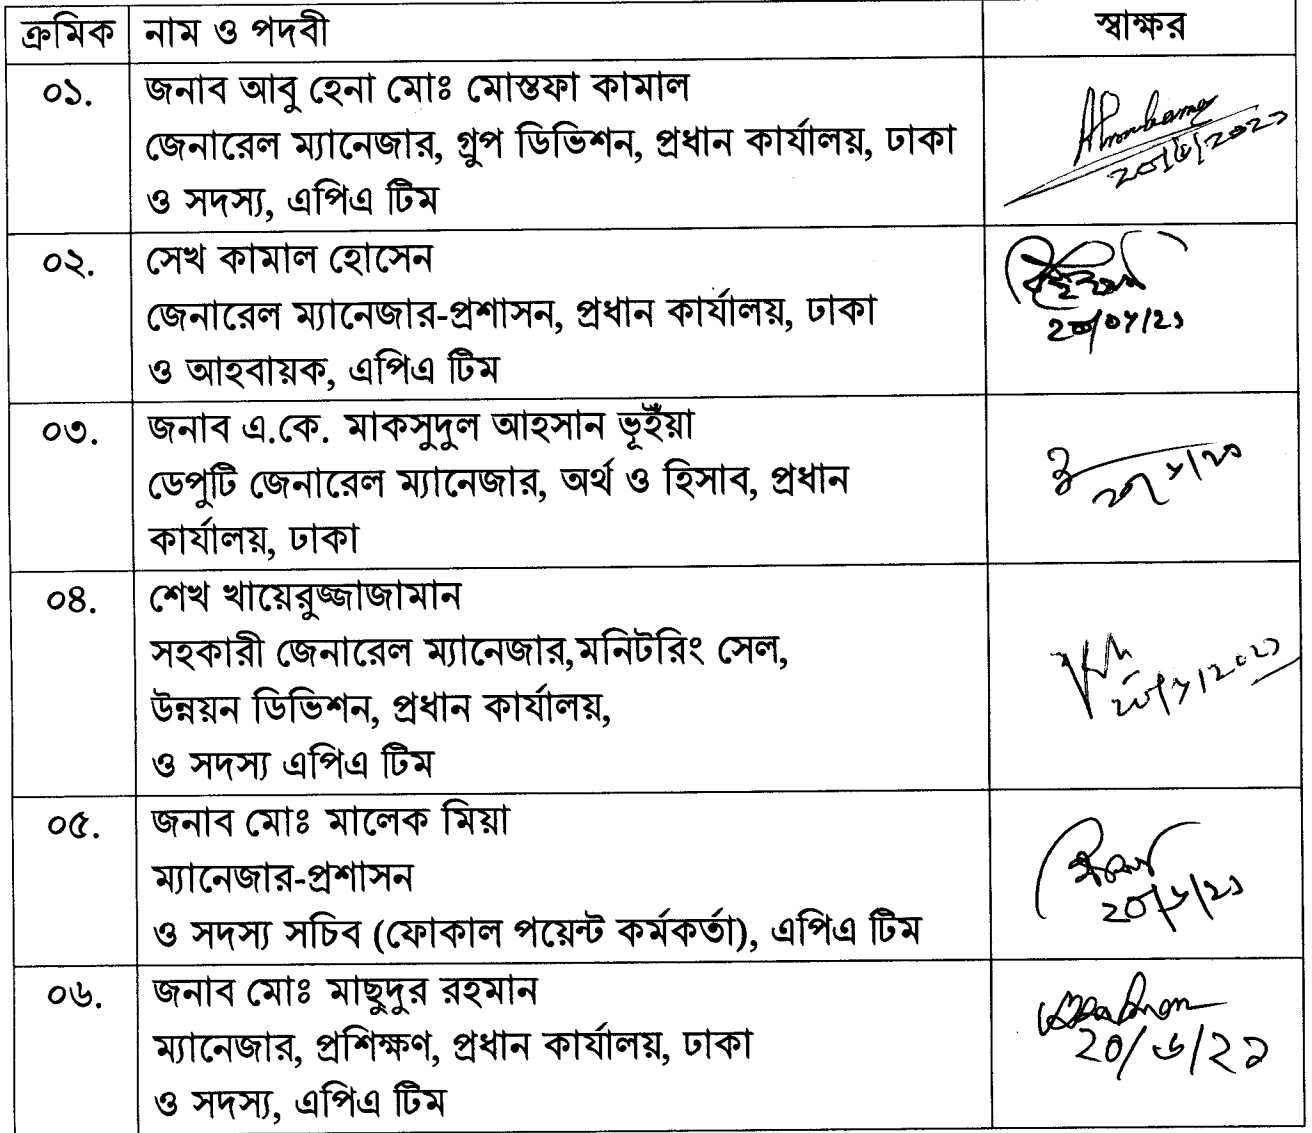 ক্রমিক নাম ও পদবী স্বাক্ষর
০১. জনাব আবু হেনা মোঃ মোস্তফা কামাল
জেনারেল ম্যানেজার, গ্রুপ ডিভিশন, প্রধান কার্যালয়, ঢাকা
ও সদস্য, এপিএ টিম
২০/৬/২০২১
০২. সেখ কামাল হোসেন
জেনারেল ম্যানেজার-প্রশাসন, প্রধান কার্যালয়, ঢাকা
ও আহবায়ক, এপিএ টিম
২০/০৬/২১
০৩. জনাব এ.কে. মাকসুদুল আহসান ভূইঁয়া
ডেপুটি জেনারেল ম্যানেজার, অর্থ ও হিসাব, প্রধান
কার্যালয়, ঢাকা
০৪. শেখ খায়েরুজ্জাজামান
সহকারী জেনারেল ম্যানেজার,মনিটরিং সেল,
উন্নয়ন ডিভিশন, প্রধান কার্যালয়,
ও সদস্য এপিএ টিম
২০/৬/২০২১
০৫. জনাব মোঃ মালেক মিয়া
ম্যানেজার-প্রশাসন
ও সদস্য সচিব (ফোকাল পয়েন্ট কর্মকর্তা), এপিএ টিম
২০/৬/২১
০৬. জনাব মোঃ মাছুদুর রহমান
ম্যানেজার, প্রশিক্ষণ, প্রধান কার্যালয়, ঢাকা
ও সদস্য, এপিএ টিম
২০/৬/২১